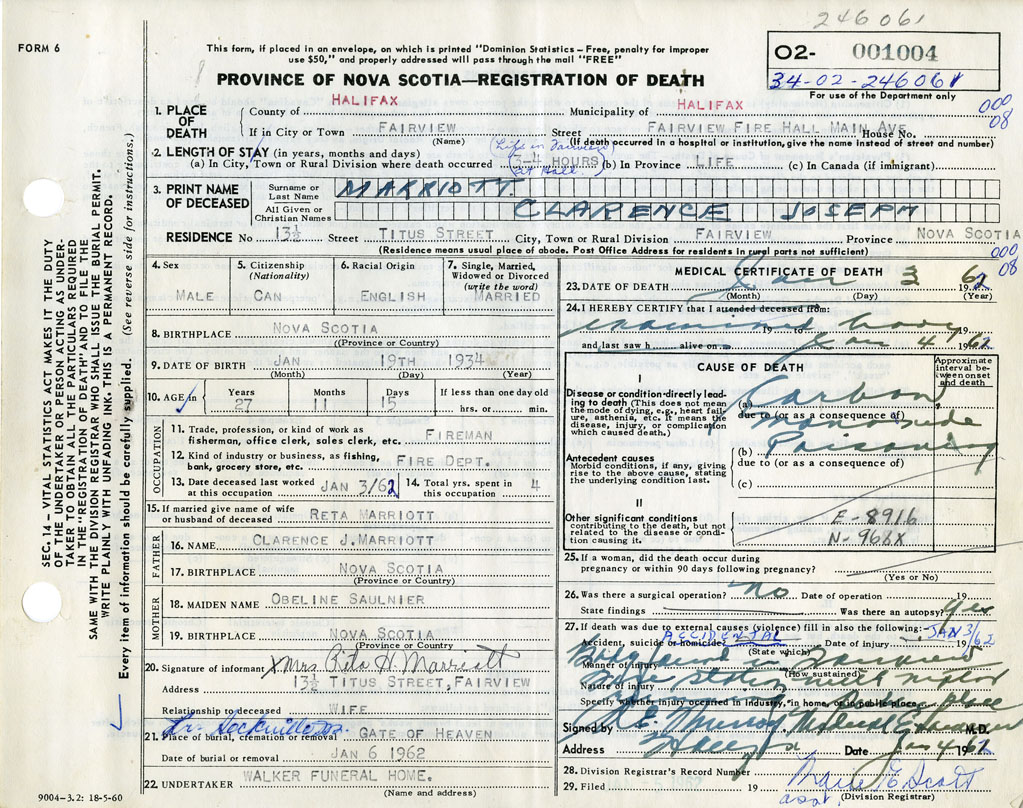 246061
FORM 6
This form, if placed in an envelope, on which is printed "Dominion Statistics – Free, penalty for improper
use $50," and properly addressed will pass through the mail "FREE"
O2- 001004
34-02-246061
For use of the Department only
PROVINCE OF NOVA SCOTIA—REGISTRATION OF DEATH
000
08
1. PLACE OF DEATH
County of HALIFAX Municipality of HALIFAX
If in City or Town FAIRVIEW Street FAIRVIEW FIRE HALL MAIN AVE House No.
(Name) (If death occurred in a hospital or institution, give the name instead of street and number)
2. LENGTH OF STAY (in years, months and days) (Life in Fairview
(a) In City, Town or Rural Division where death occurred 3-4 HOURS (b) In Province LIFE (c) In Canada (if immigrant)
at Hall.)
3. PRINT NAME OF DECEASED
Surname or Last Name MARRIOTT
All Given or Christian Names CLARENCE JOSEPH
RESIDENCE No 13½ Street TITUS STREET City, Town or Rural Division FAIRVIEW Province NOVA SCOTIA
(Residence means usual place of abode. Post Office Address for residents in rural parts not sufficient)
000
08
4. Sex MALE
5. Citizenship (Nationality) CAN
6. Racial Origin ENGLISH
7. Single, Married, Widowed or Divorced (write the word) MARRIED
8. BIRTHPLACE NOVA SCOTIA
((Province or Country)
9. DATE OF BIRTH JAN 19TH 1934
(Month) (Day) (Year)
10. AGE in Years 27 Months 11 Days 15 If less than one day old hrs. or min.
OCCUPATION
11. Trade, profession, or kind of work as
fisherman, office clerk, sales clerk, etc. FIREMAN
12. Kind of industry or business, as fishing,
bank, grocery store, etc. FIRE DEPT.
13. Date deceased last worked
at this occupation JAN 3/62
14. Total yrs. spent in
this occupation 4
15. If married give name of wife
or husband of deceased RETA MARRIOTT
FATHER
16. NAME CLARENCE J. MARRIOTT
17. BIRTHPLACE NOVA SCOTIA
(Province or Country)
MOTHER
18. MAIDEN NAME OBELINE SAULNIER
19. BIRTHPLACE NOVA SCOTIA
(Province or Country)
20. Signature of informant X Mrs Rita H. Marriott
Address 13½ TITUS STREET, FAIRVIEW
Relationship to deceased WIFE
21. Place of burial, cremation or removal GATE OF HEAVEN
Date of burial or removal JAN 6 1962
22. UNDERTAKER WALKER FUNERAL HOME.
(Name and address)
9004-3.2: 18-5-60
MEDICAL CERTIFICATE OF DEATH
23. DATE OF DEATH Jan 3 1962
(Month) (Day) (Year)
24. I HEREBY CERTIFY that I attended deceased from:
examined body 19
and last saw h alive on Jan 4 1962
CAUSE OF DEATH
Approximate interval between onset and death
I
Disease or condition directly leading to death (This does not mean the mode of dying, e.g., heart failure, asthenia, etc. It means the disease, injury, or complication which caused death.)
(a) Carbon
due to (or as a consequence of)
Monoxide
(b) Poisoning
due to (or as a consequence of)
(c)
Antecedent causes
Morbid conditions, if any, giving rise to the above cause, stating the underlying condition last.
II
Other significant conditions
contributing to the death, but not related to the disease or condition causing it.
E-8916
N-968X
25. If a woman, did the death occur during
pregnancy or within 90 days following pregnancy?
(Yes or No)
26. Was there a surgical operation? No Date of operation 19
State findings Was there an autopsy? yes
27. If death was due to external causes (violence) fill in also the following:
Accident, suicide or homicide? ACCIDENTAL Date of injury JAN 3/62 19
(State which)
Manner of injury Being found in Fairview
(How sustained)
Nature of injury Fire Station with motor
Specify whether injury occurred in industry, in home, or in public place
running Public place
Signed by Medical Examiner M.D.
Address Halifax Date Jan 4 1962
28. Division Registrar's Record Number
29. Filed 19
Scott
asst. (Division Registrar)
SEC. 14 – VITAL STATISTICS ACT MAKES IT THE DUTY
OF THE UNDERTAKER OR PERSON ACTING AS UNDERTAKER
TO OBTAIN ALL THE PARTICULARS REQUIRED
IN THE "REGISTRATION OF DEATH" AND TO FILE THE
SAME WITH THE DIVISION REGISTRAR WHO SHALL ISSUE THE BURIAL PERMIT.
WRITE PLAINLY WITH UNFADING INK. THIS IS A PERMANENT RECORD.
Every item of information should be carefully supplied. (See reverse side for instructions.)